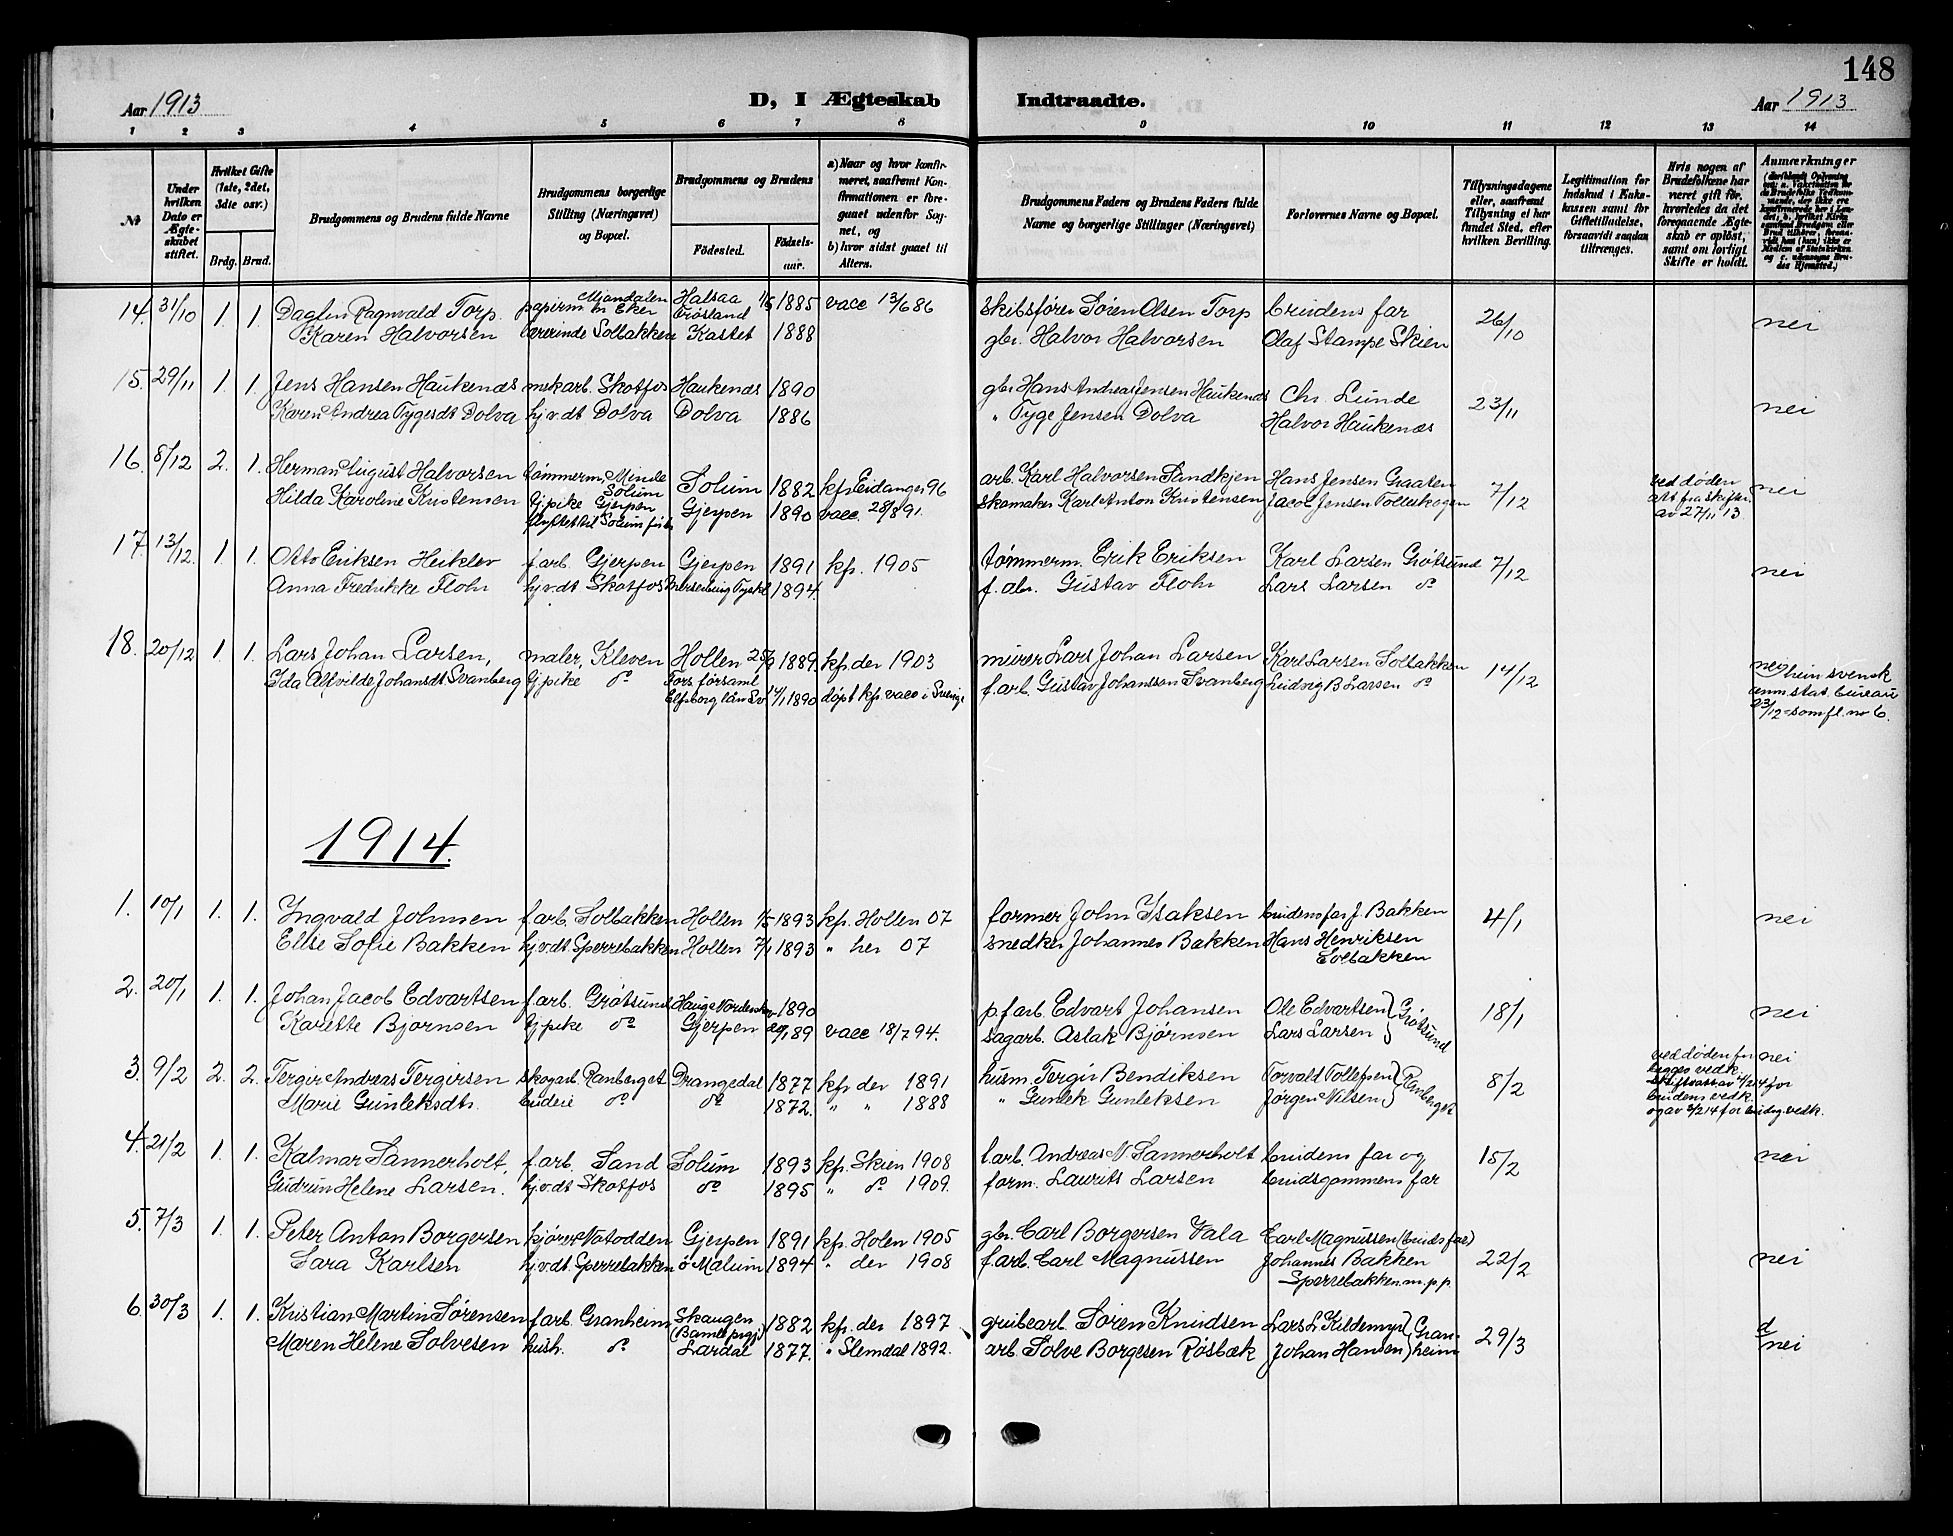 148
Aar 1913
D, I Ægteskab Indtraadte.
Aar 1913
1 2 3 4 5 6 7 8 9 10 11 12 13 14
№
Under hvilken Dato er Ægteskabet stiftet.
Hvilket Gifte (1ste, 2det, 3die osv.)
Brdg. Brud.
Brudgommens og Brudens fulde Navne
Brudgommens borgerlige Stilling (Næringsvei) og Bopæl.
Brudgommens og Brudens
Födested.
Födselsaar.
a) Naar og hvor konfirmeret, saafremt Konfirmationen er foregaaet udenfor Sognet, og
b) hvor sidst gaaet til Alters.
Brudgommens Faders og Brudens Faders fulde Navne og borgerlige Stillinger (Næringsvei)
Forlovernes Navne og Bopæl.
Tillysningsdagene eller, saafremt Tillysning ei har fundet Sted, efter hvilken Bevilling.
Legitimation for Indskud i Enkekassen samt for Giftetilladelse, forsaavidt saadan tiltrænges.
Hvis nogen af Brudefolkene har været gift för, hvorledes da det foregaaende Ægteskab er oplöst, samt om lovligt Skifte er holdt.
Anmærkninger
14. 31/10 1. 1. Dagfin Ragnvald Torp. papirm. Mjøndalen n Eker Halsaa 1885 vacc 13/6 86 skibsfører Søren Olsen Torp brudens far 26/10 nei
Karen Halvorsen lærerinde Solbakken Kastet 1888 gbr. Halvor Halvorsen Olaf Stampe Skien
15. 29/11 1. 1. Jens Hansen Haukenæs mekarb. Skotfos Haukenæs 1890 gbr Hans Andreas Jensen Haukenæs Chr. Lunde 23/11 nei
Karen Andrea Tygesdt Dolva hj.v.dt Dolva Dolva 1886 " Tyge Jensen Dolva Halvor Haukenæs
16. 8/12 2. 1. Herman August Halvorsen tømmerm. Minde Solum Solum 1882 kf i Eidanger 96 arb. Karl Halvorsen Sandkjen Hans Jensen Graaten 7/12 ved døden att fra skifter. av 27/11 13. nei
Hilda Karoline Kristensen tj.pike Gjerpen Gjerpen 1890 vacc. 28/8 91. skomaker Karl Anton Kristensen Jacob Jensen Follaskogen
17. 13/12. 1. 1. Otto Eriksen Heiklev f.arb. Gjerpen Gjerpen 1891 kf. 1905 tømmerm. Erik Eriksen Karl Larsen Grøtsund 7/12 nei
Anna Fredrikke Flohr hj.v.dt Skotfos Merseburg Tyskl 1894 Gustav Flohr Lars Larsen do
18. 20/12 1. 1. Lars Johan Larsen, maler, Kleven Hollen 25/9 1889. kf. der 1903 murer Lars Johan Larsen Karl Larsen Solbakken 14/12 nei
Ida Alfvilde Johansdt. Svanberg tj.pike do Fors församl. Elfsborg län Sv. 1890 døpt kf. vacc i Sverige f.arb. Gustav Johansson Svanberg Ludvig B Larsen do stat. bureau 23/12
1914.
1. 10/1 1. 1. Ingvald Johnsen f.arb. Solbakken Hollen 1/5 1893 kf. Hollen 07 former John Isaksen brudens far J. Bakken 4/1 nei
Ellse Sofie Bakken hj.v.dt Sperrebakken Hollen 1893 " her 07 snedker Johannes Bakken Hans Henriksen Solbakken
2. 20/1 1. 1. Johan Jacob Edvartsen f.arb. Grøtsund 1890 p.f.arb. Edvart Johansen Ole Edvartsen } Grøtsund 18/1 nei
Karette Bjørnsen tj.pike do Gjerpen 89 vacc 18/7 94. sagarb. Aslak Bjørnsen Lars Larsen
3. 9/2 2. 2. Tergir Andreas Tergirsen skogarb. Ranberget Drangedal 1877 kf. der 1891 husm. Tergir Bendiksen Torvald Tollefsen } Ranberget 8/2 nei
Marie Gunleksdtr. budeie do do 1872. " " 1888 " Gunlek Gunleksen Jørgen Nilsen
4. 21/2 1. 1. Kalmar Sannerholt, f.arb. Sand Solum 1893 kf. Skien 1908 Andreas N. Sannerholt brudens far og 15/2 nei
Gudrun Helene Larsen. hj.v.dt Skotfos do 1895 " do 1909. form. Laurits Larsen brudgommens far
5. 7/3 1. 1. Peter Anton Borgersen kjører Notodden Gjerpen 1891 kf. Holen 1905 gbr. Carl Borgersen Vala Carl Magnussen (bruds far) 22/2 nei
Sara Karlsen hj.v.dt. Sperrebakken ö Malum 1894 " der 1908 f.arb. Carl Magnussen Johannes Bakken
Sperrebakken m.p.p.
6. 30/3 1. 1. Kristian Martin Sørensen f.arb. Granheim Skaugen (Bamel prgj.) 1882 kf. der 1897 grubearb. Søren Knudsen Lars L. Kildemyr } Granheim 29/3 nei
Maren Helene Solvesen hush. do Lardal 1877. " Slemdal 1892. arb. Solve Borgesen Røsbæk Johan Hansen